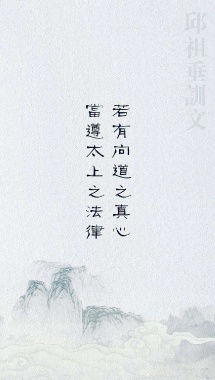 邱祖垂訓文
若有向道之真心
當遵太上之法律